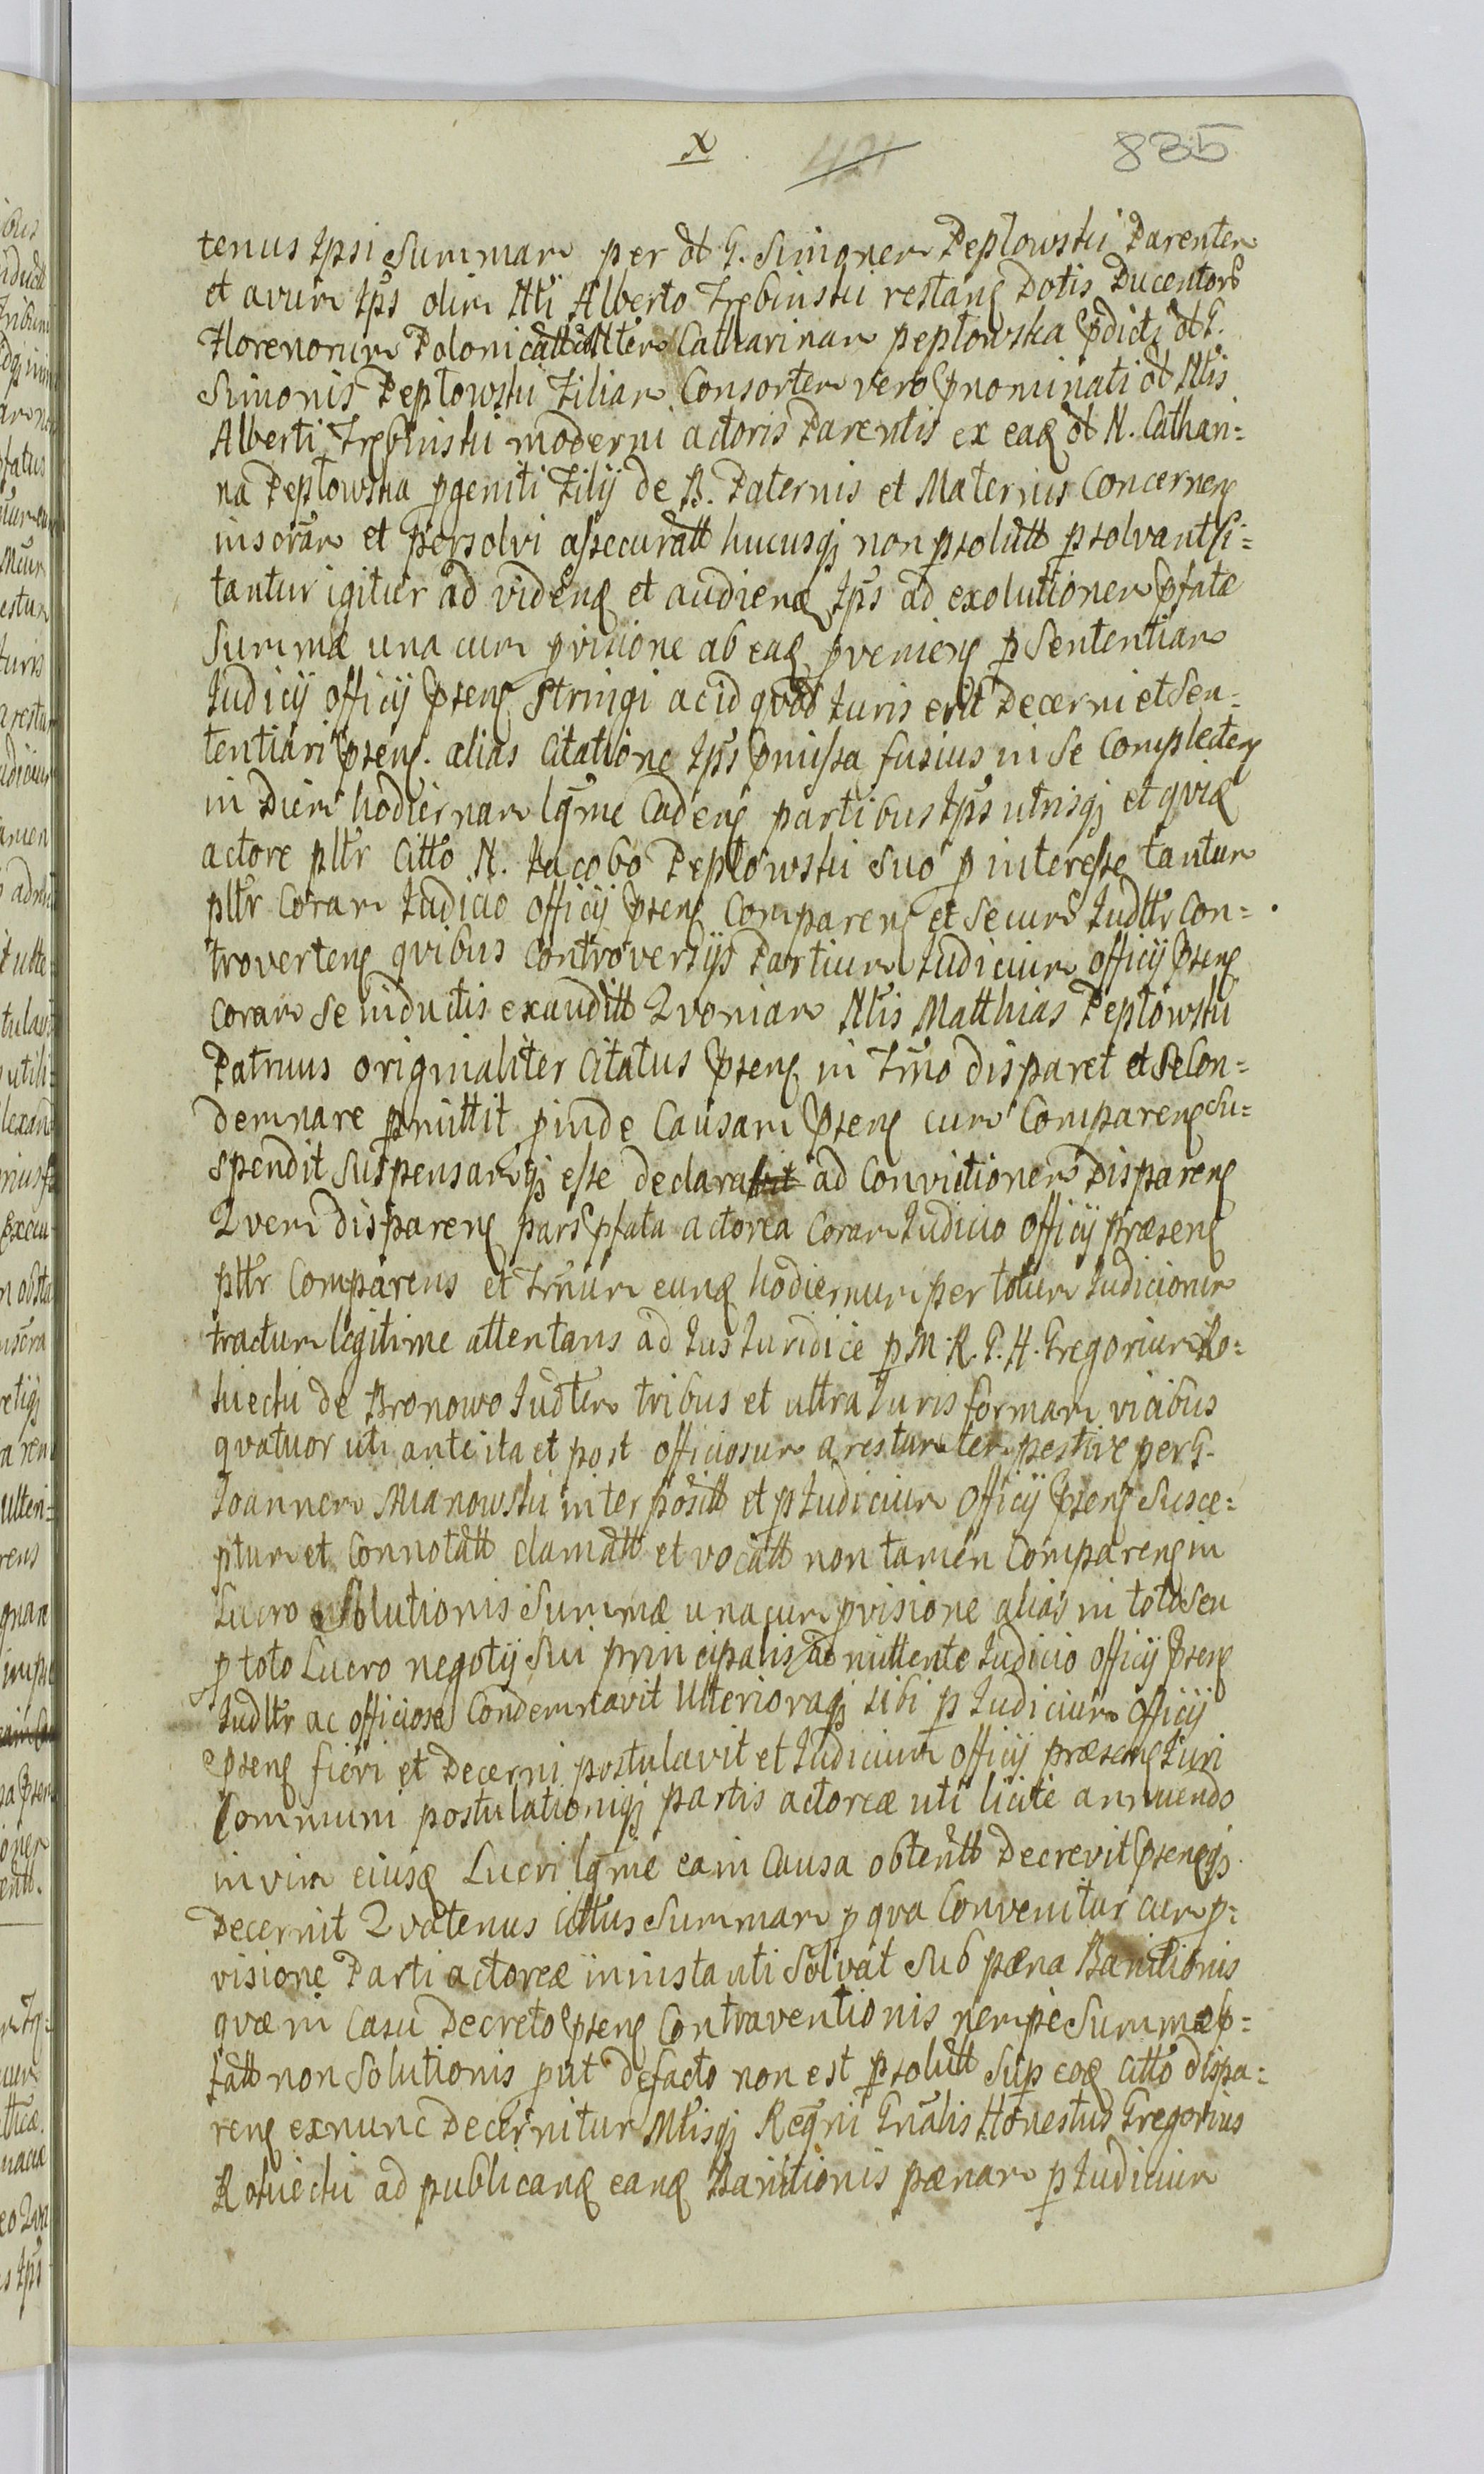 X 421 835
tenus Ipsi Summam per ol G. Simonem Peplowski Parentem
et avum Ips olim Ntti Alberto Trębinski restanę Dotis Ducentorũ
Florenorum Polonicatt Catharinam peplowska pdicti ol G.
Simonis Peplowski Filiam Consortem vero pnominati ol Nlis
Alberti Trębinski moderni actoris Parentis ex eaę ol N. Cathari=
na Peplowska pgeniti Filij de B. Paternis et Maternis Concernenę
inscram et persolvi assecuratt hucusqȝ non psolutt psolvant Ci=
tantur igitur ad videnę et audienę Ips ad exolutionem pfatæ
Summæ una cum pvisione ab eaę pvenienę p Sententiam
Judicij officij pnsenę Stringi ac id qvod Juris erit Decerni et Sen=
tentiari psenę. alias Citatione Ips pmissa fusius in Se Complectenę
in Diem hodiernam lgme Cadenę partibus Ips utrisqȝ et qvię
actore pltr Citto N. Jacobo Peplowski Suo p interesse tantum
pltr Coram Judicio officij psenę Comparenę et Secum Judltr Con=
trovertenę qvibus Controversijs Partium Judicium officij psenę
coram Se inductis exauditt Qvoniam Nlis Matthias Peplowski
Patruus originaliter Citatus psenę in Tmo disparet et Se Con=
demnare pmittit pinde Causam psenę cum Comparenę Su=
spendit Suspensamqȝ esse declarabit ad Convictionem Disparenę
Qvem disparenę pars pfata actorea Coram Judicio officij præsenę
pltr Comparens et Tmum eunę hodiernum per totum Judiciorum
tractum legitime attentans ad Jus Juridice p M. R. G. H. Gregorium Ro=
kiecki de Bronowo Judtem tribus et ultra Juris formam vicibus
qvatuor uti ante ita et post officiosum arestum tempestive per G.
Joannem Mianowski interpositt et p Judicium Officij psenę Susce=
ptum et Connotatt clamatt et vocatt non tamen Comparenę in
Lucro Solutionis Summæ una cum pvisione alias in toto Seu
p toto Lucro negotij Sui principalis admittente Judicio officij psenę
Judltr ac officiose Condemnavit Ulterioraqȝ sibi p Judicium Officij
psenę fieri et Decerni postulavit et Judicium officij præsenę Juri
Communi postulationiqȝ partis actoreæ uti licite annuendo
in vim eiusę Lucri lgme ea in Causa obtentt Decrevit psenęqȝ
Decernit Qvatenus Cittus Summam p qva Convenitur cum p=
visione Parti actoreæ in instanti Solvat Sub pæna Banitionis
qvæ in Casu Decreto psenę Contraventionis nempe Summæ p=
fatt non Solutionis put defacto non est psolutt Sup eoę Citto dispa=
renę exnunc Decernitur Mlisqȝ Regni Gnalis Honestus Gregorius
Rokiecki ad publicanę eanę Banitionis pænam p Judicium